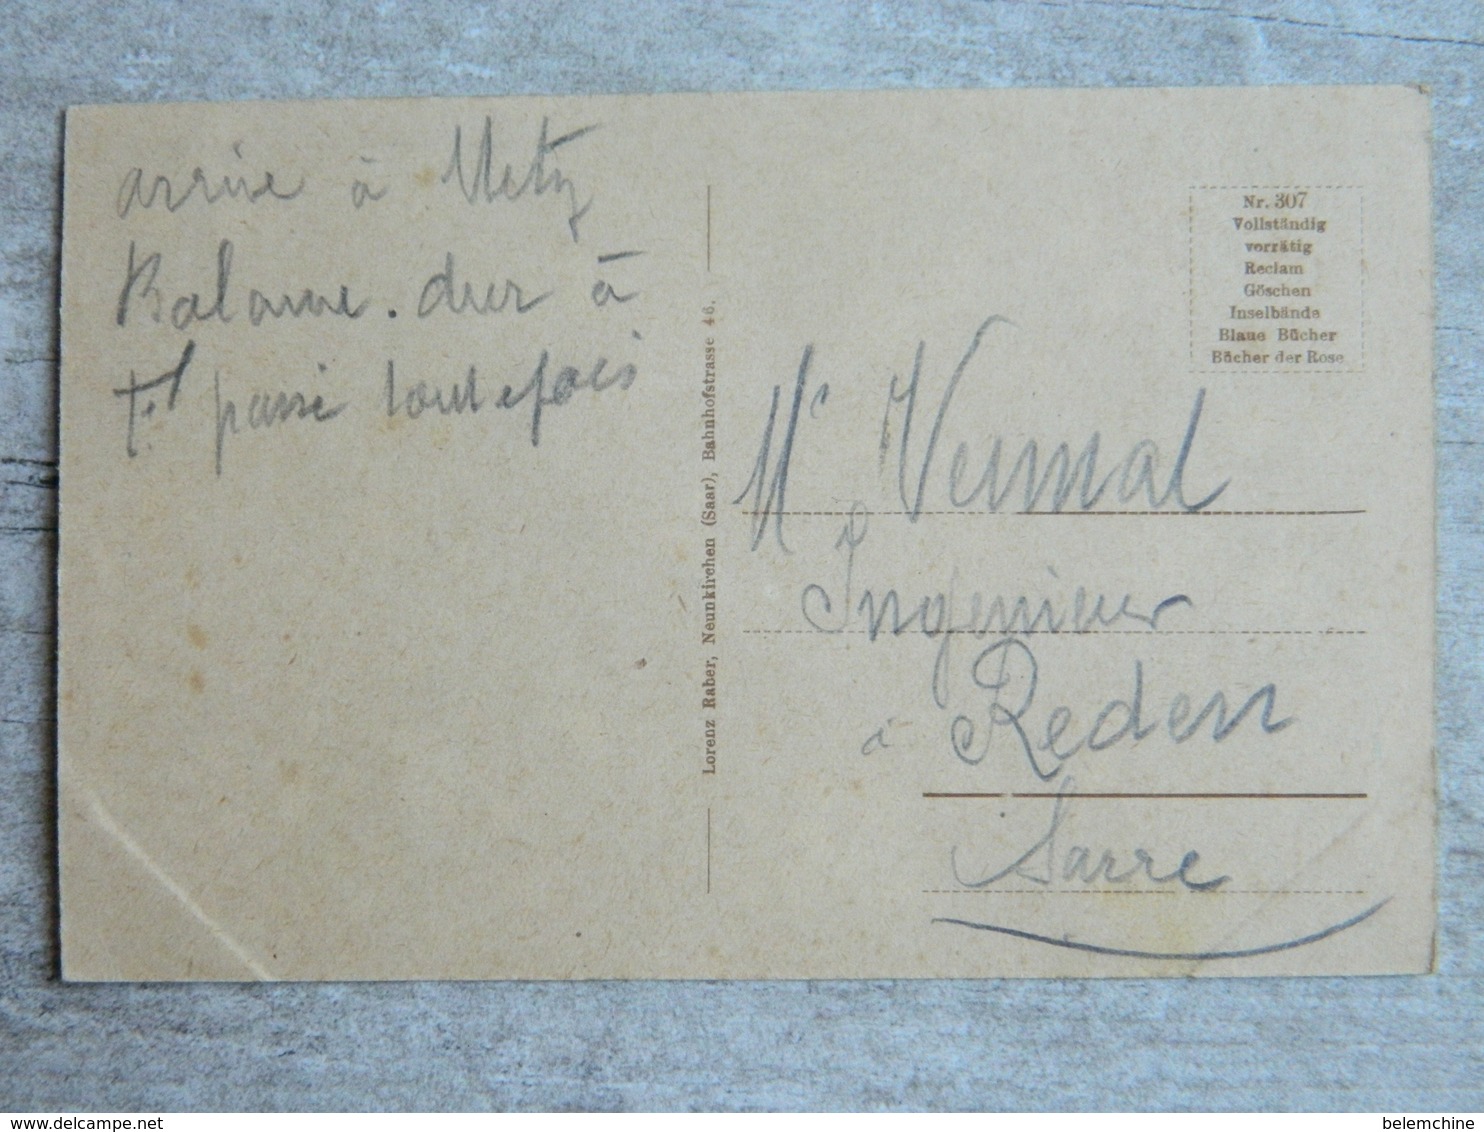 arrive à Metz
à
passé toutefois
Lorenz Raber, Neunkirchen (Saar), Bahnhofstrasse 46.
Nr. 307
Vollständig
vorrätig
Reclam
Göschen
Inselbände
Blaue Bücher
Bücher der Rose
Mr Vermal
Ingenieur
à Reden
Sarre
delcampe.net
belemchine